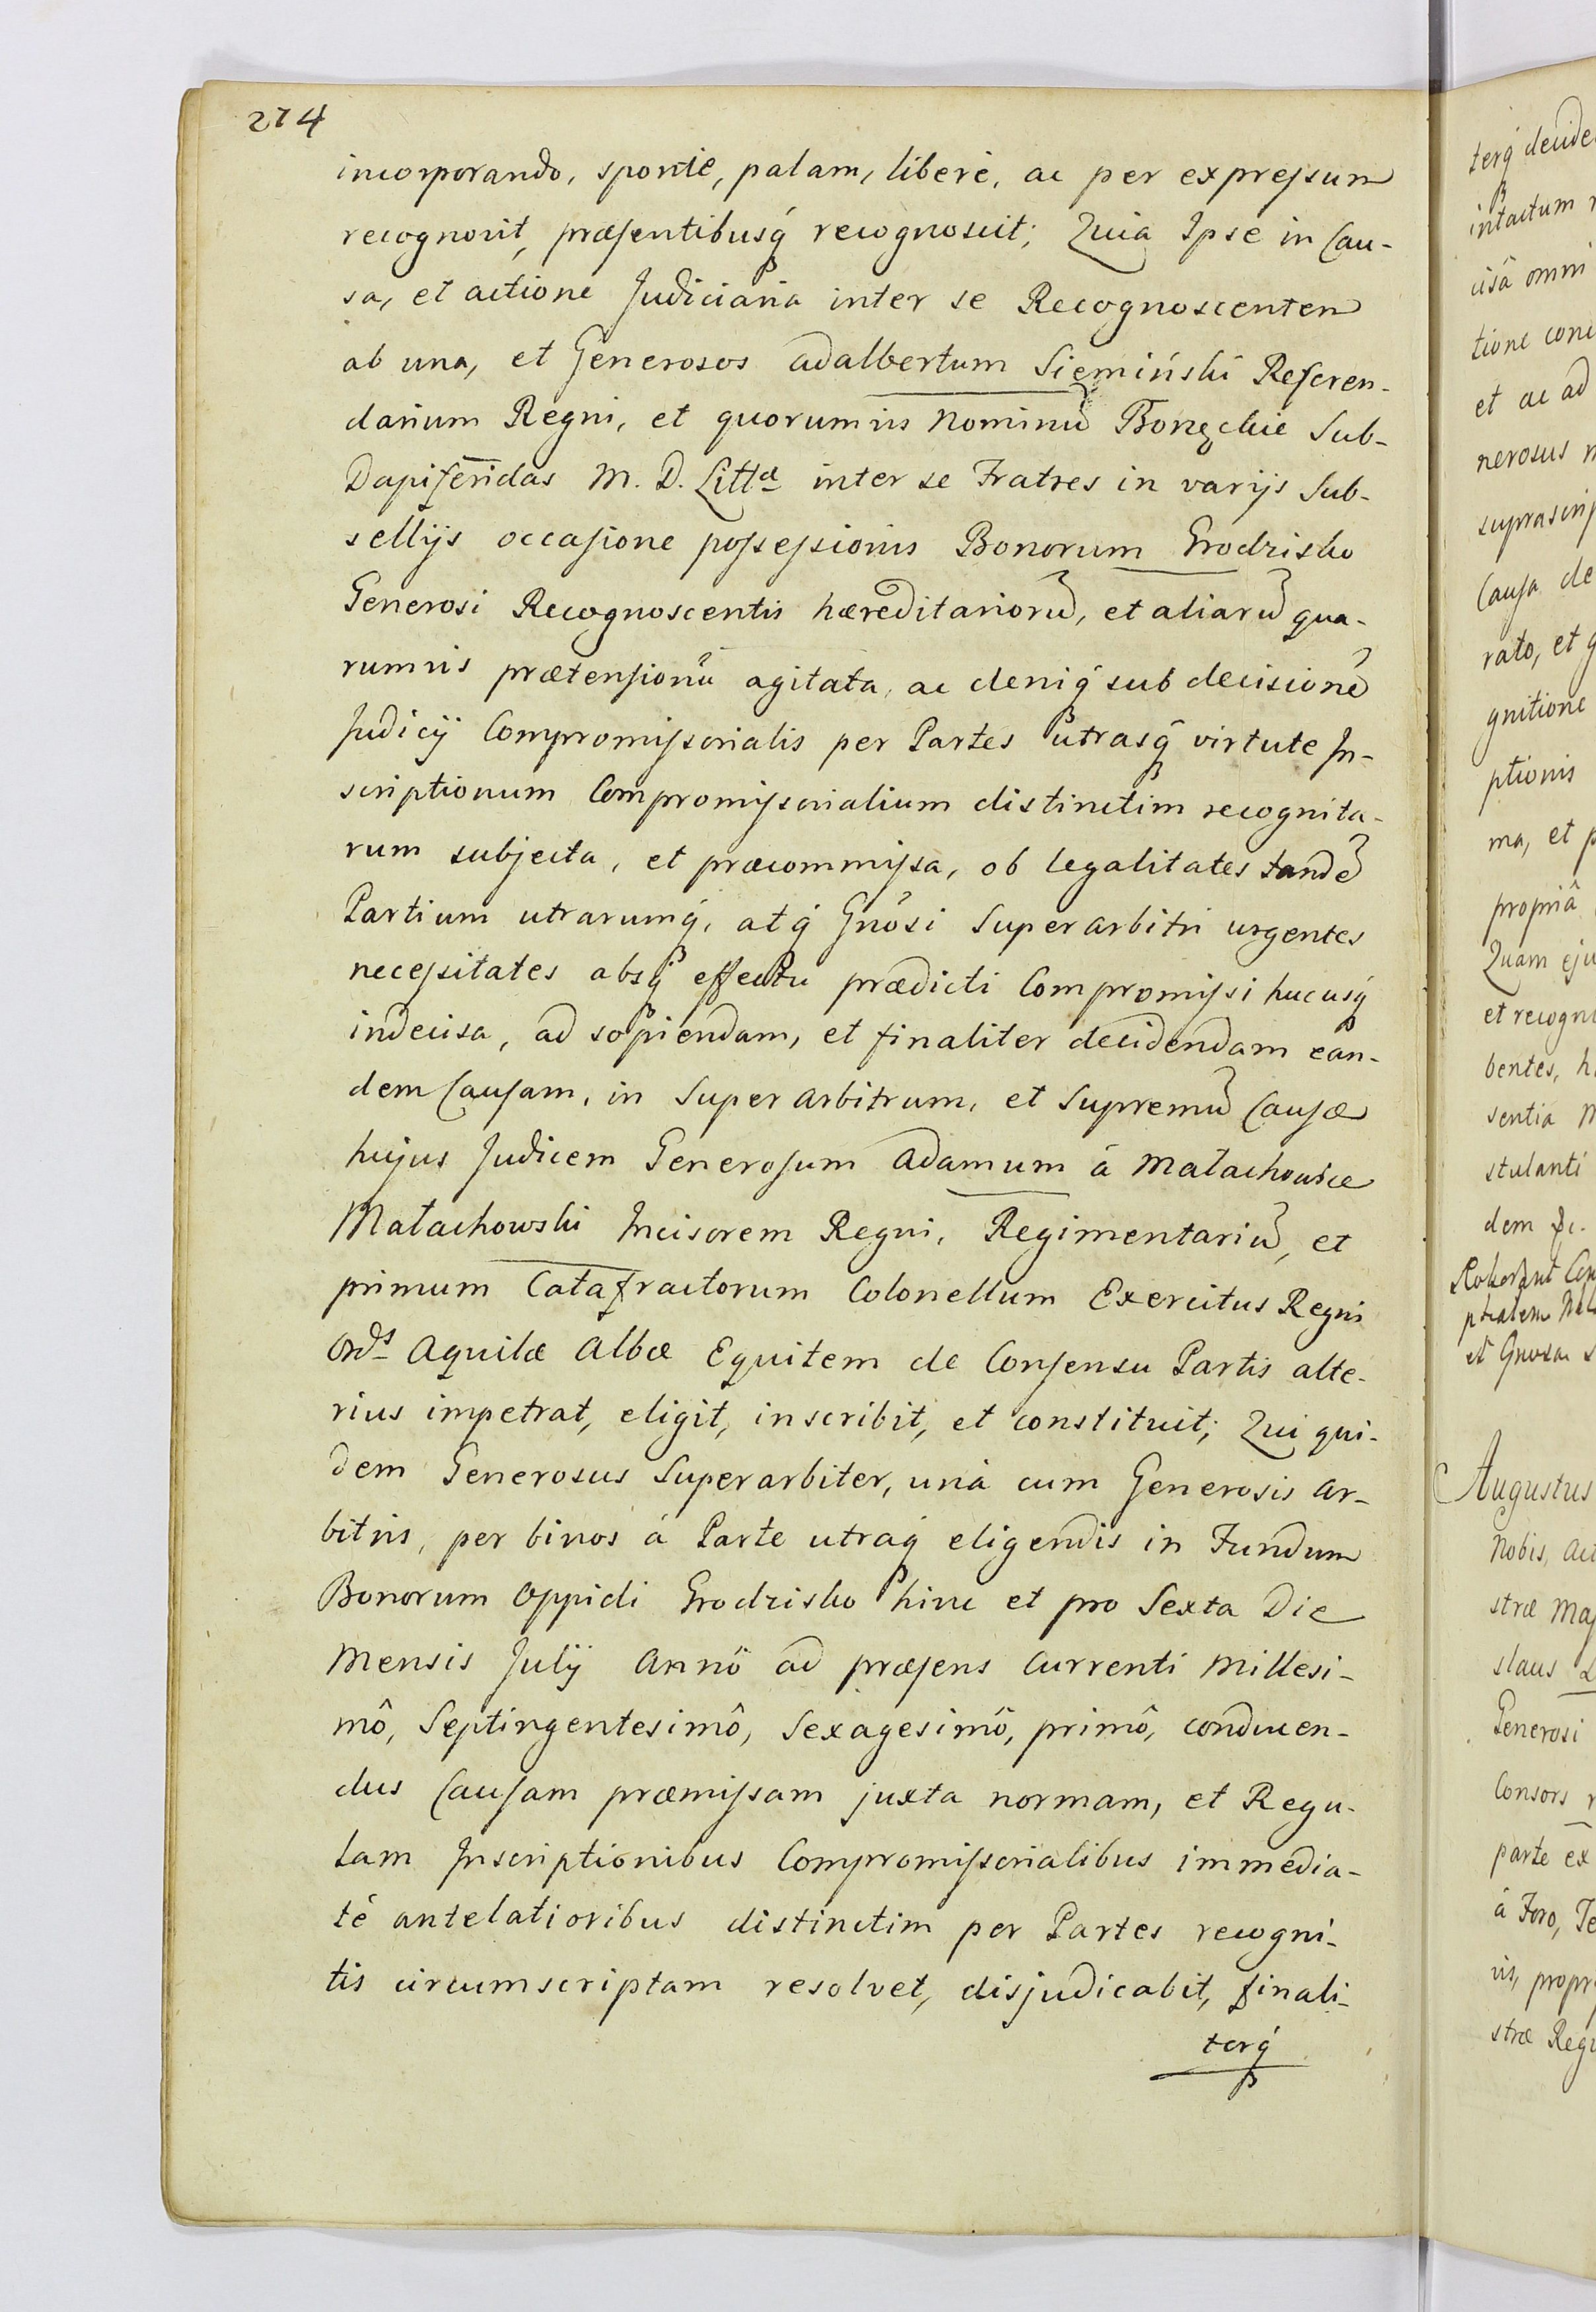 274
incorporando, sponte, palam, liberè, ac per expressum
recognovit, præsentibusq́ recognoscit; Quia Ipse in Cau-
sa, et actione Judiciaria inter se Recognoscentem
ab una, et Generosos Adalbertum Siemiński Referen-
darium Regni, et quorumvis Nominũ Sub-
Dapiferidas M. D. Littæ inter se Fratres in varijs Sub-
sellijs occasione possessionis Bonorum Grodzisko
Generosi Recognoscentis hæreditariorũ, et aliarũ qua-
rumvis prætensionũ agitata, ac deniq́ sub decisionẽ
Judicij Compromissorialis per Partes utrasq́ virtute In-
scriptionum Compromissorialium distinctim recognita-
rum subjecta, et præcommissa, ob legalitates tandẽ
Partium utrarumq́, atq́ Gnosi Superarbitri urgentes
necessitates absq́ effectu prædicti Compromissi hucusq́
indecisa, ad sopiendam, et finaliter decidendam ean-
dem Causam, in Super arbitrum, et Supremũ Causæ
hujus Judicem Generosum Adamum á Małachowice
Małachowski Incisorem Regni, Regimentariũ, et
primum Catafractorum Colonellum Exercitus Regni
Ords Aquilæ Albæ Equitem de Consensu Partis alte-
rius impetrat, eligit, inscribit, et constituit; Qui qui-
dem Generosus Superarbiter, unà cum Generosis Ar-
bitris, per binos á Parte utraq́ eligendis in Fundum
Bonorum Oppidi Grodzisko hinc et pro Sexta Die
Mensis Julij Annô ad præsens Currenti Millesi-
mô, Septingentesimô, Sexagesimô, primô, conducen-
dus Causam præmissam juxta normam, et Regu-
lam Inscriptionibus Compromissorialibus immedia-
tè antelatioribus distinctim per Partes recogni-
tis circumscriptam resolvet, disjudicabit, finali-
terq́
terq́ decide
intactum
cisâ omni
tione
et ac ad
nerosus
suprascrip
Causa de
rato, et
gnitione
ptionis
ma, et p
propriâ
Quam eju
et recogni
bentes, h
sentia M
stulanti
dem
et
Augustus
Nobis, Act
stræ Maj
slaus
Generosi
Consors
parte ex
à Foro, Te
propr
stræ Regi